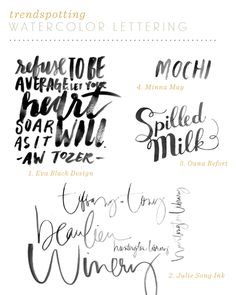 trendspotting
WATERCOLOR LETTERING
refuse TO BE
AVERAGE. LET YOUR
heart
SOAR
AS IT WILL
-AW TOZER-
1. Eva Black Design
MOCHI
4. Minna May
Spilled
Milk
3. Oana Befort
tiffany-tony
beaulieu
Winery
2. Julie Song Ink